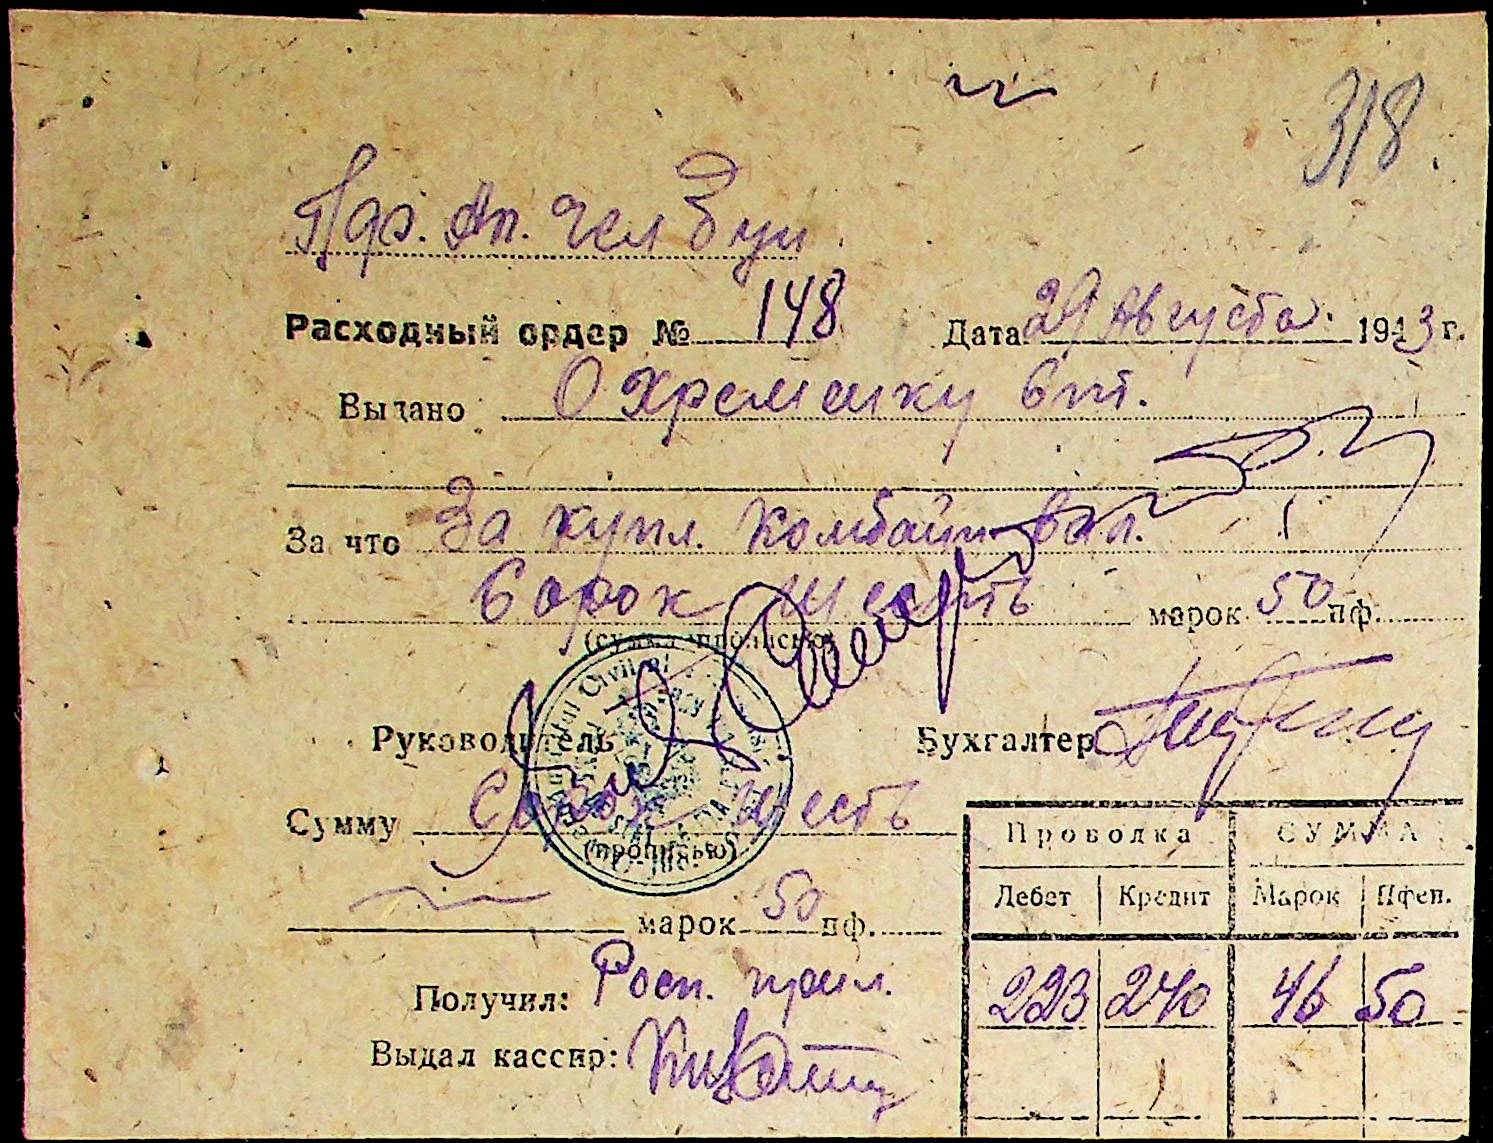 318.
Расходный ордер № 148 Дата 29 Августа. 1943 г.
Выдано Охременку
За что За купл. комбайн
Сорок шесть марок 50 пф.
(сумма прописью)
Руководитель Бухгалтер
Сумму Сорок шесть
(прописью)
марок 50 пф.
Получил: Росп. прил.
Выдал кассир:
Проводка СУММА
Дебет Кредит Марок Пфен.
223 240 46 50